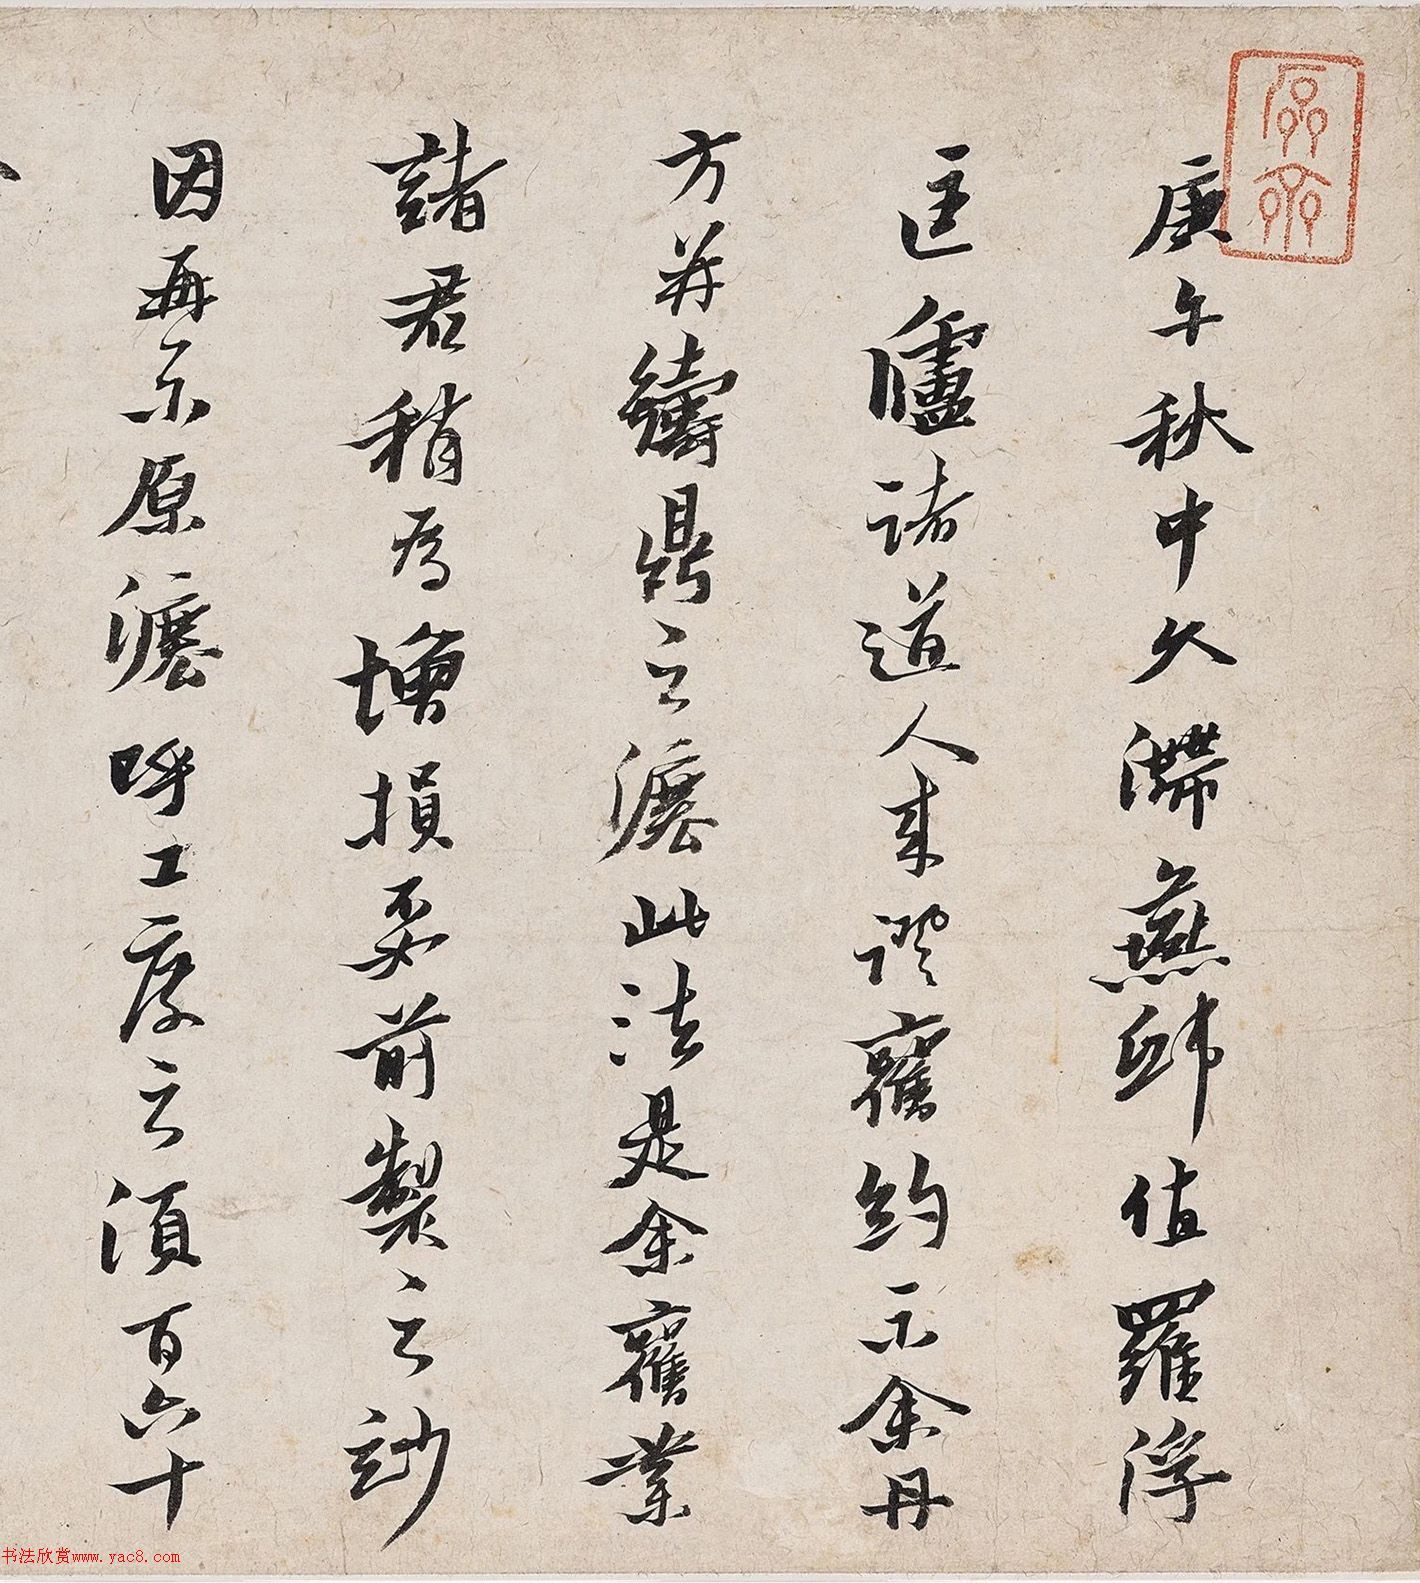 庚午秋中久滯燕邸值羅浮
匡廬諸道人來證舊約示余丹
方并鑄鼎之灋此法是余舊業
諸君稍為增損要前製之竗
因再示原灋呼工度之須百六十
书法欣赏www.yac8.com